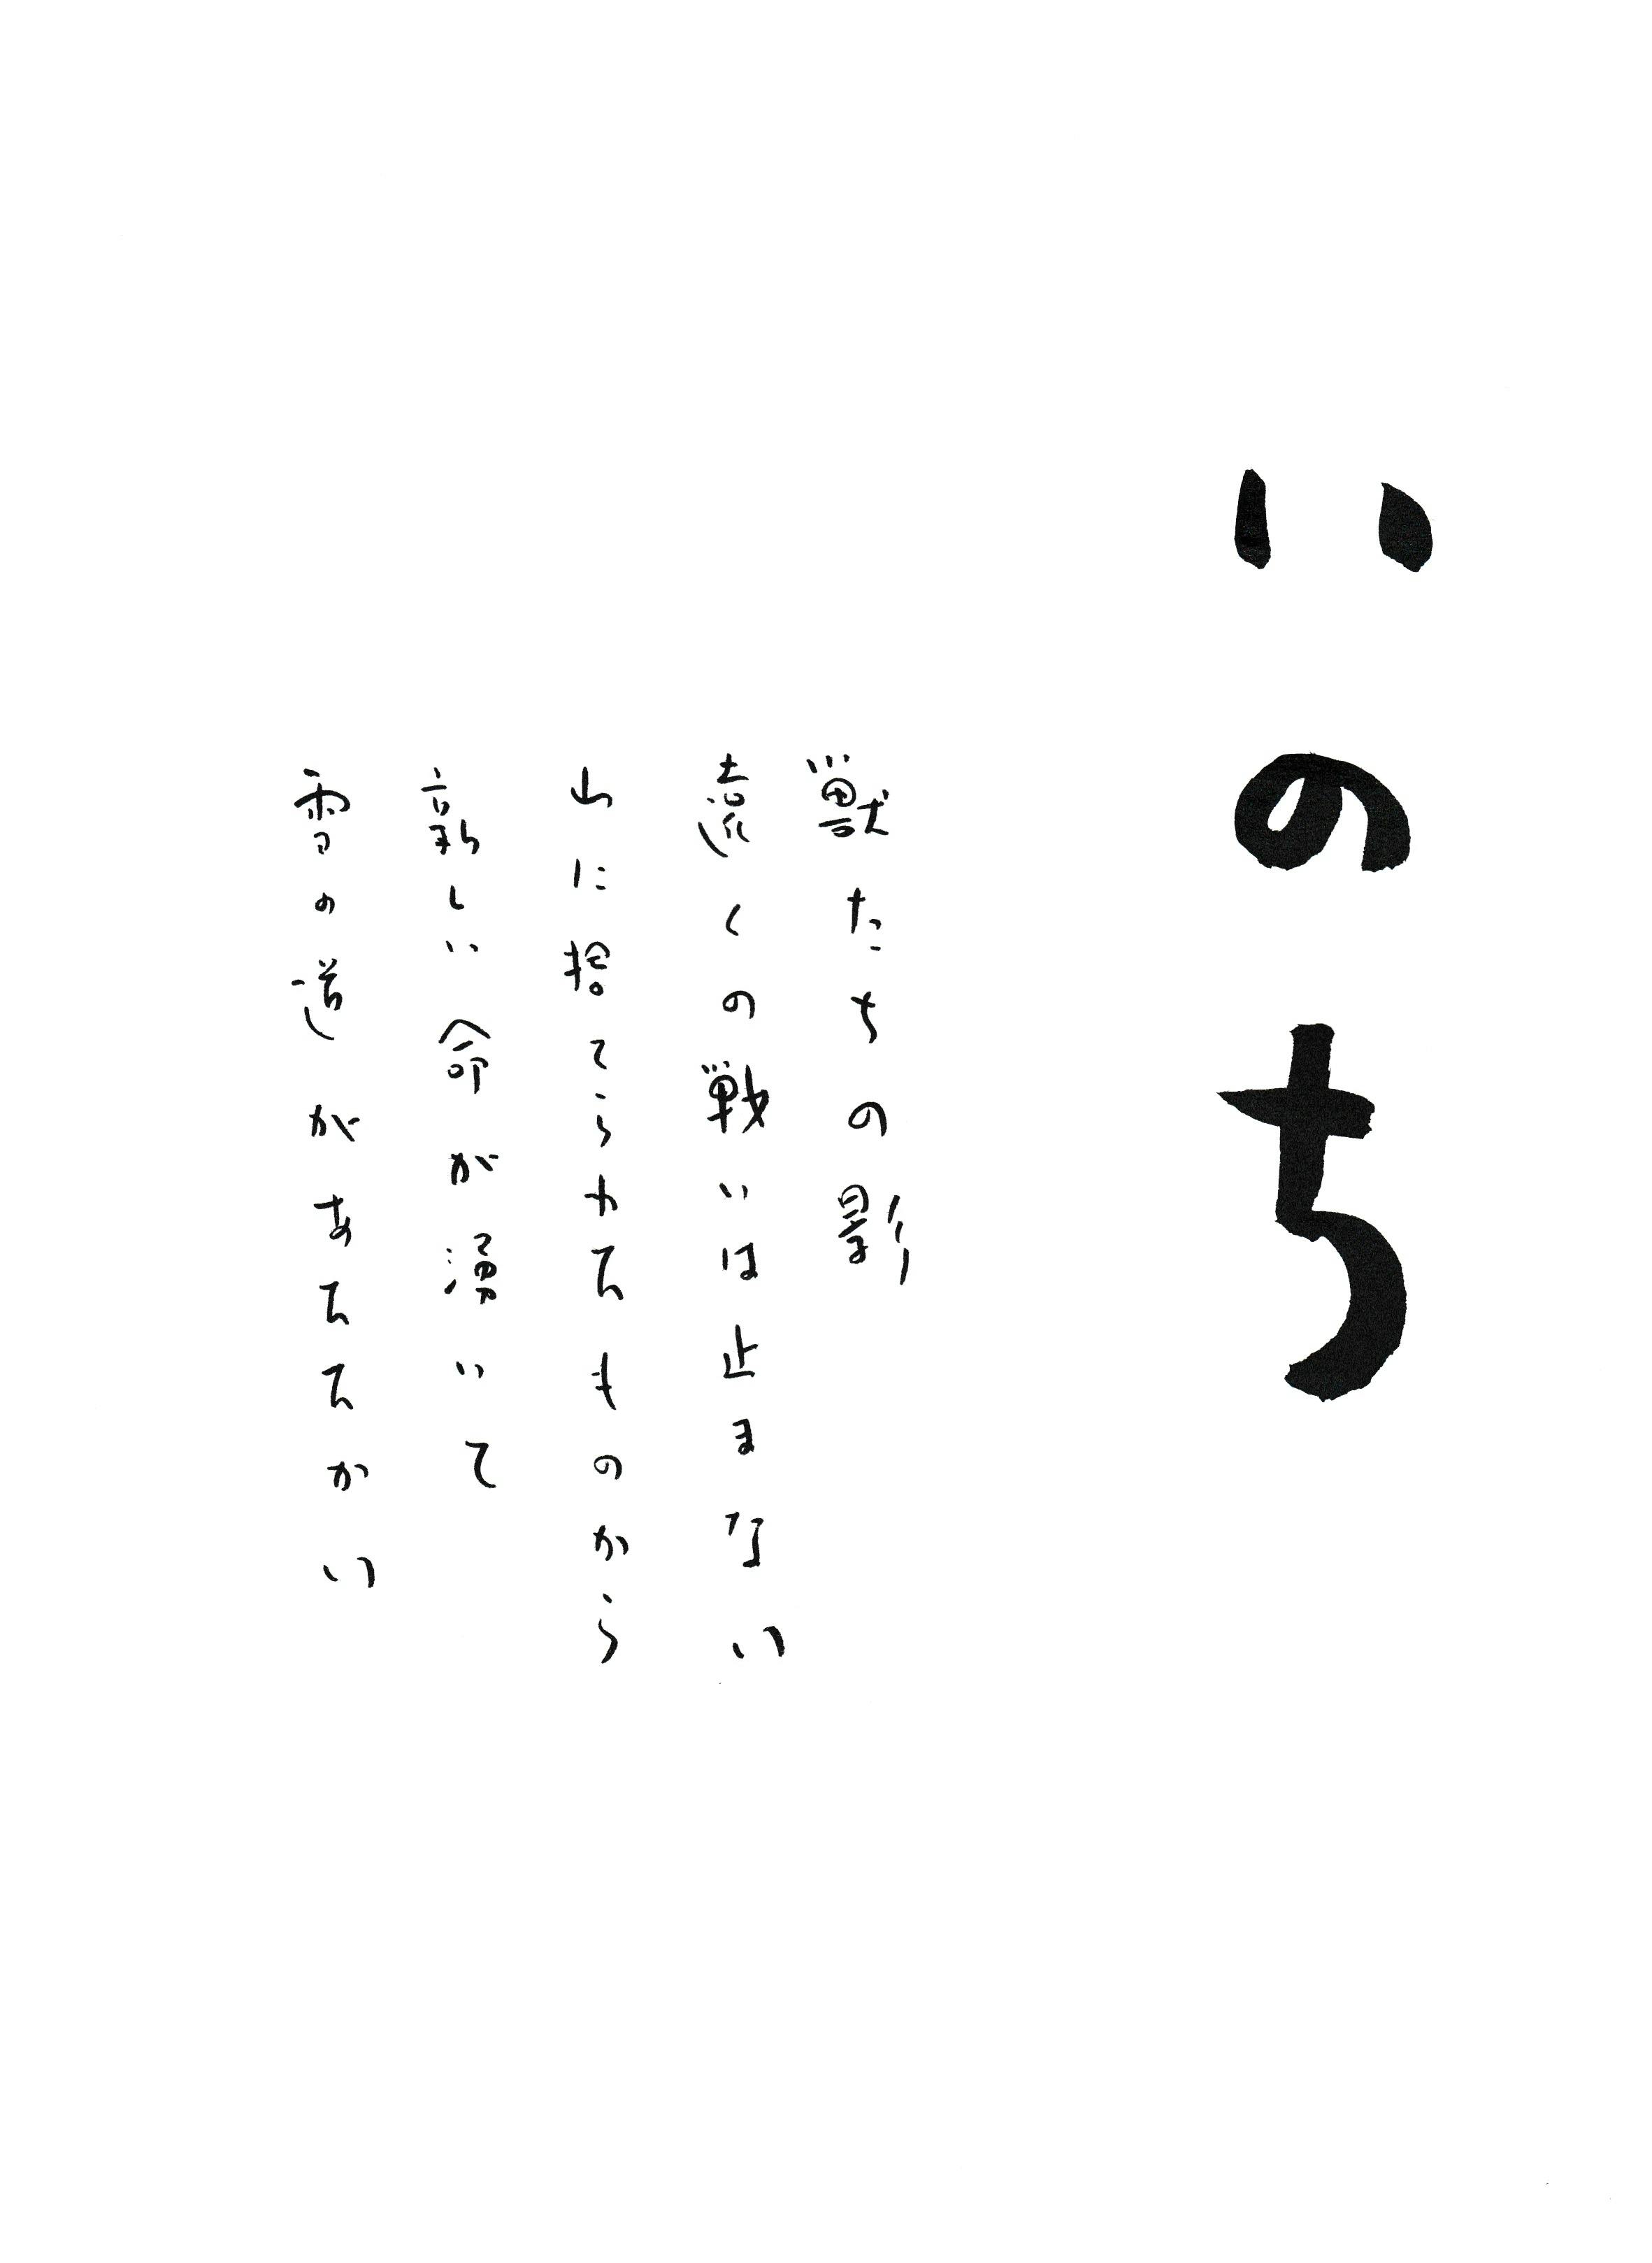 いのち
獣たちの影
遠くの戦いは止まない
山に捨てられたものから
新しい命が湧いて
雪の道があたたかい